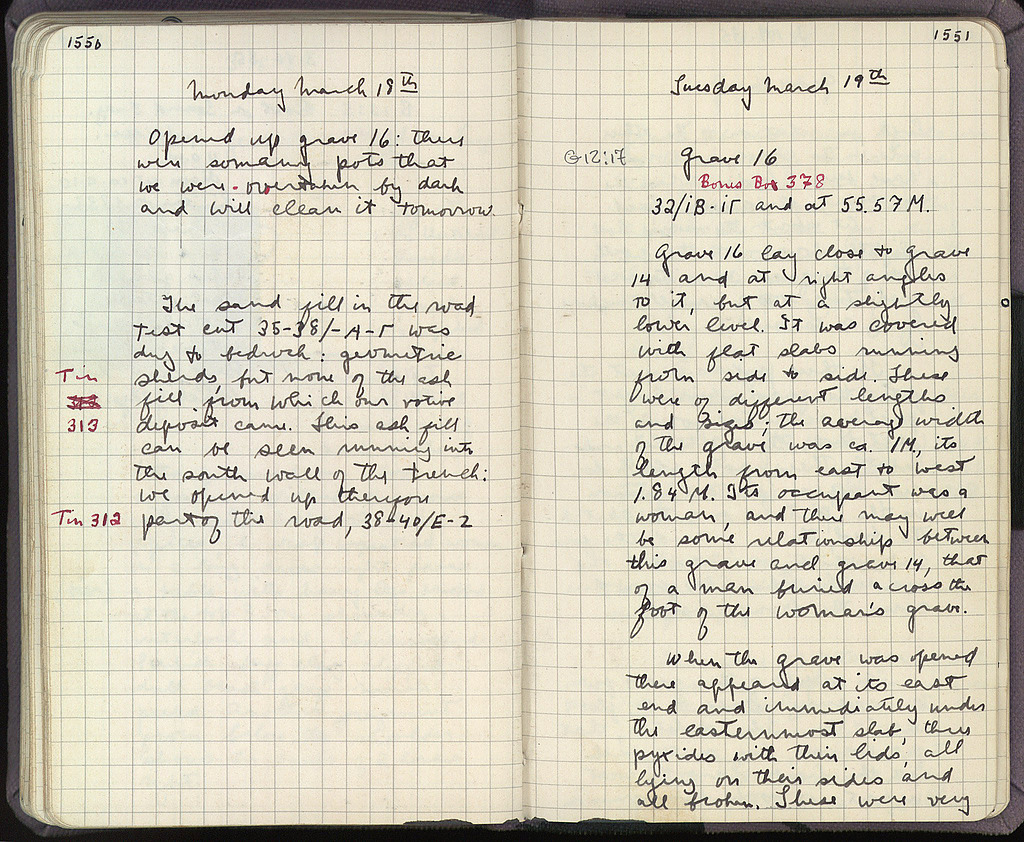 1550
Monday March 18th
Opened up grave 16: there
were so many pots that
we were overtaken by dark
and will clean it tomorrow.
The sand fill in the road
test cut 35-38/-A-Γ was
dug to bedrock: geometric
Tin sherds, but none of the ash
312 fill from which our votive
313 deposit came. This ash fill
can be seen running into
the south wall of the trench:
we opened up therefore
Tin 312 part of the road, 38-40/E-2
1551
Tuesday March 19th
G12:17 Grave 16
Bones Box 378
32/ιB-ιΓ and at 55.57 M.
Grave 16 lay close to grave
14 and at right angles
to it, but at a slightly
lower level. It was covered
with flat slabs running
from side to side. These
were of different lengths
and sizes; the average width
of the grave was ca. 1M, its
length from east to west
1.84 M. Its occupant was a
woman, and there may well
be some relationship between
this grave and grave 14, that
of a man buried across the
foot of the woman's grave.
When the grave was opened
there appeared at its east
end and immediately under
the easternmost slab, three
pyxides with their lids, all
lying on their sides and
all broken. These were very